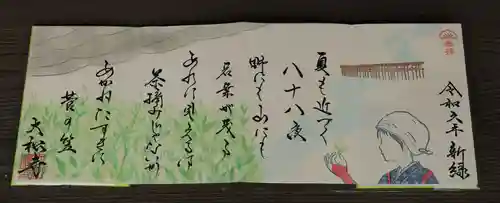 令和六年 新緑
夏も近づく
八十八夜
野にも山にも
若葉が茂る
あれに見えるは
茶摘みじゃないか
あかねだすきに
菅の笠